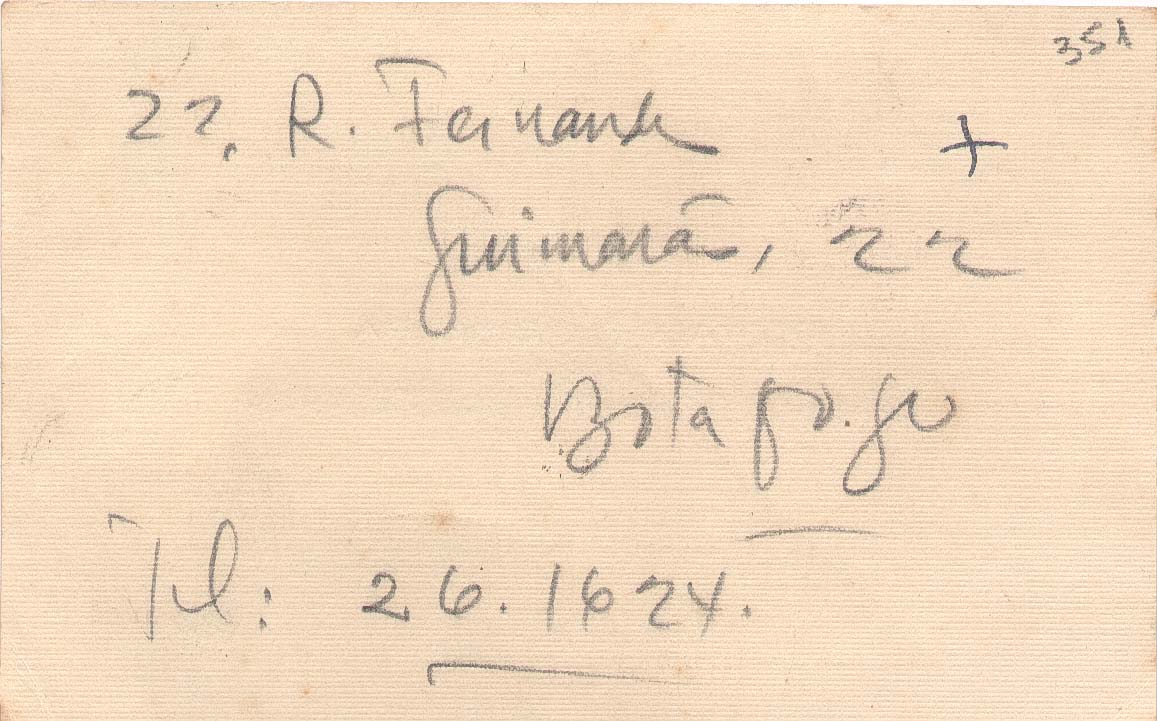 351
22, R. Fernandes
+
Guimarães, 22
Botafogo
Tel: 26.1624.